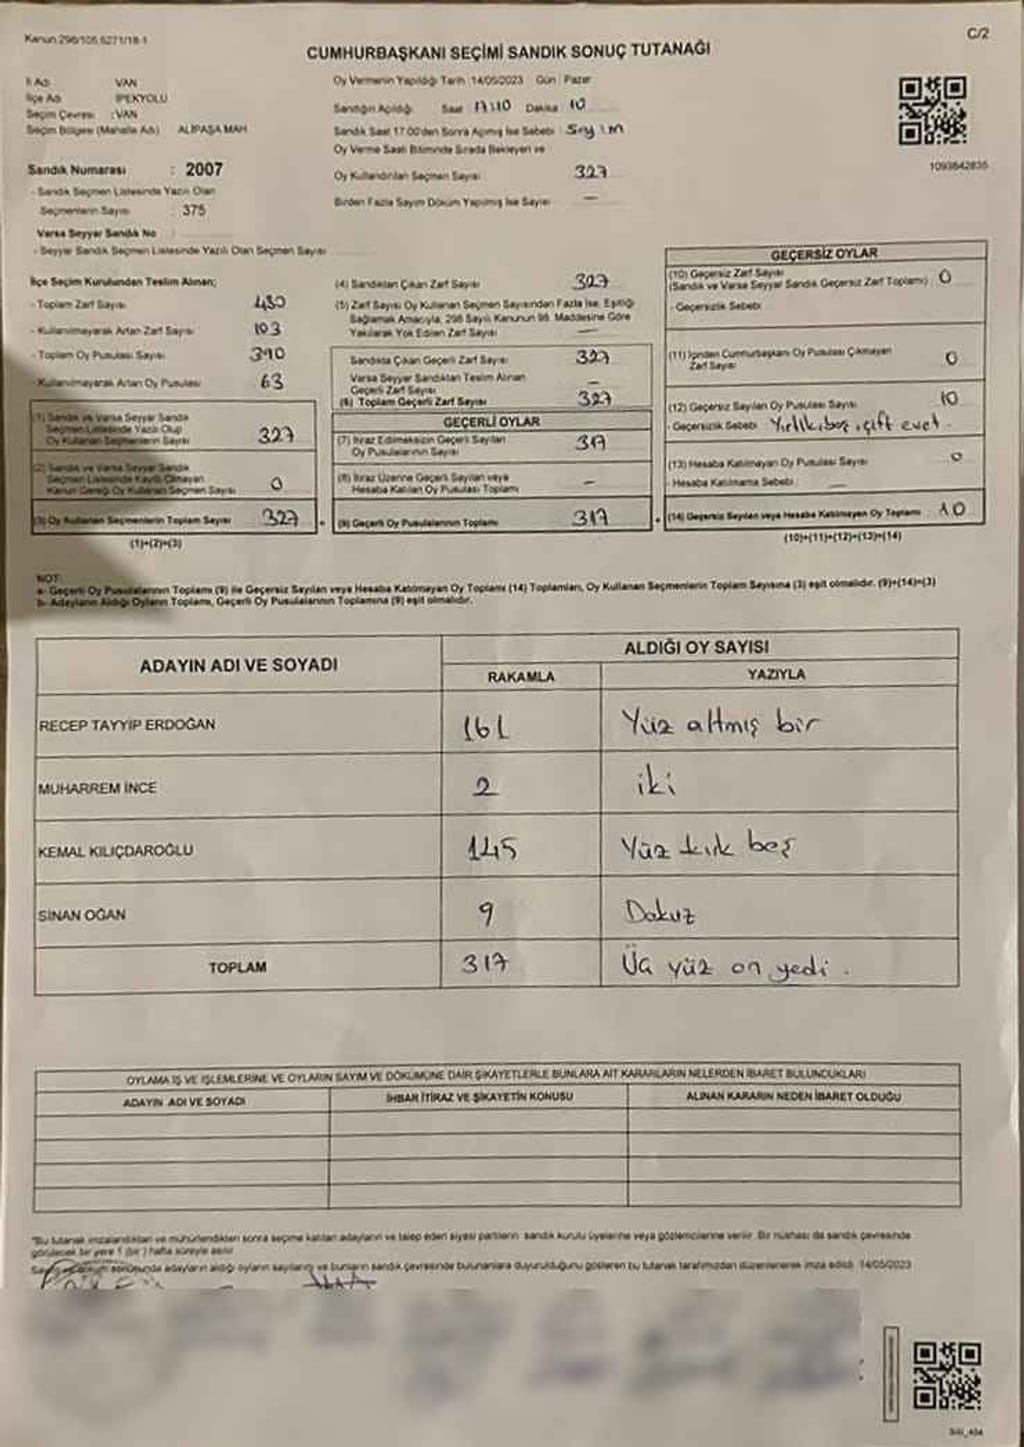 Kanun 298/105 6271/18-1
C/2
CUMHURBAŞKANI SEÇİMİ SANDIK SONUÇ TUTANAĞI
İl Adı VAN
İlçe Adı İPEKYOLU
Seçim Çevresi :VAN
Seçim Bölgesi (Mahalle Adı) ALİPAŞA MAH
Sandık Numarası : 2007
- Sandık Seçmen Listesinde Yazılı Olan
Seçmenlerin Sayısı : 375
Varsa Seyyar Sandık No :
- Seyyar Sandık Seçmen Listesinde Yazılı Olan Seçmen Sayısı
Oy Vermenin Yapıldığı Tarih 14/05/2023 Gün Pazar
Sandığın Açıldığı Saat 17:10 Dakika 10
Sandık Saat 17.00'den Sonra Açılmış İse Sebebi Sayım
Oy Verme Saati Bitiminde Sırada Bekleyen ve
Oy Kullandırılan Seçmen Sayısı 327
Birden Fazla Sayım Döküm Yapılmış İse Sayısı —
1093642835
İlçe Seçim Kurulundan Teslim Alınan;
- Toplam Zarf Sayısı 430
- Kullanılmayarak Artan Zarf Sayısı 103
- Toplam Oy Pusulası Sayısı 390
- Kullanılmayarak Artan Oy Pusulası 63
(1) Sandık ve Varsa Seyyar Sandık
Seçmen Listesinde Yazılı Olup
Oy Kullanan Seçmenlerin Sayısı 327
(2) Sandık ve Varsa Seyyar Sandık
Seçmen Listesinde Kayıtlı Olmayan
Kanun Gereği Oy Kullanan Seçmen Sayısı 0
(3) Oy Kullanan Seçmenlerin Toplam Sayısı 327
(1)+(2)=(3)
(4) Sandıktan Çıkan Zarf Sayısı 327
(5) Zarf Sayısı Oy Kullanan Seçmen Sayısından Fazla İse, Eşitliği
Sağlamak Amacıyla, 298 Sayılı Kanunun 98. Maddesine Göre
Yakılarak Yok Edilen Zarf Sayısı —
Sandıkta Çıkan Geçerli Zarf Sayısı 327
Varsa Seyyar Sandıktan Teslim Alınan
Geçerli Zarf Sayısı –
(6) Toplam Geçerli Zarf Sayısı 327
GEÇERLİ OYLAR
(7) İtiraz Edilmeksizin Geçerli Sayılan
Oy Pusulalarının Sayısı 317
(8) İtiraz Üzerine Geçerli Sayılan veya
Hesaba Katılan Oy Pusulası Toplamı –
(9) Geçerli Oy Pusulalarının Toplamı 317
GEÇERSİZ OYLAR
(10) Geçersiz Zarf Sayısı
(Sandık ve Varsa Seyyar Sandık Geçersiz Zarf Toplamı) : 0
- Geçersizlik Sebebi
(11) İçinden Cumhurbaşkanı Oy Pusulası Çıkmayan
Zarf Sayısı 0
(12) Geçersiz Sayılan Oy Pusulası Sayısı 10
- Geçersizlik Sebebi boş, çift evet.
(13) Hesaba Katılmayan Oy Pusulası Sayısı 0
- Hesaba Katılmama Sebebi : —
(14) Geçersiz Sayılan veya Hesaba Katılmayan Oy Toplamı 10
(10)+(11)+(12)+(13)=(14)
NOT:
a- Geçerli Oy Pusulalarının Toplamı (9) ile Geçersiz Sayılan veya Hesaba Katılmayan Oy Toplamı (14) Toplamları, Oy Kullanan Seçmenlerin Toplam Sayısına (3) eşit olmalıdır. (9)+(14)=(3)
b- Adayların Aldığı Oyların Toplamı, Geçerli Oy Pusulalarının Toplamına (9) eşit olmalıdır.
ADAYIN ADI VE SOYADI ALDIĞI OY SAYISI
RAKAMLA YAZIYLA
RECEP TAYYİP ERDOĞAN 161 Yüz altmış bir
MUHARREM İNCE 2 iki
KEMAL KILIÇDAROĞLU 145 Yüz kırk beş
SİNAN OĞAN 9 Dokuz
TOPLAM 317 Üç yüz on yedi.
OYLAMA İŞ VE İŞLEMLERİNE VE OYLARIN SAYIM VE DÖKÜMÜNE DAİR ŞİKAYETLERLE BUNLARA AİT KARARLARIN NELERDEN İBARET BULUNDUKLARI
ADAYIN ADI VE SOYADI İHBAR İTİRAZ VE ŞİKAYETİN KONUSU ALINAN KARARIN NEDEN İBARET OLDUĞU
"Bu tutanak imzalandıktan ve mühürlendikten sonra seçime katılan adayların ve talep eden siyasi partilerin sandık kurulu üyelerine veya gözlemcilerine verilir. Bir nüshası da sandık çevresinde
görülecek bir yere 1 (bir) hafta süreyle asılır.
Sayım sonucunda adayların aldığı oyların sayılarını ve bunların sandık çevresinde bulunanlara duyurulduğunu gösteren bu tutanak tarafımızdan düzenlenerek imza edildi. 14/05/2023